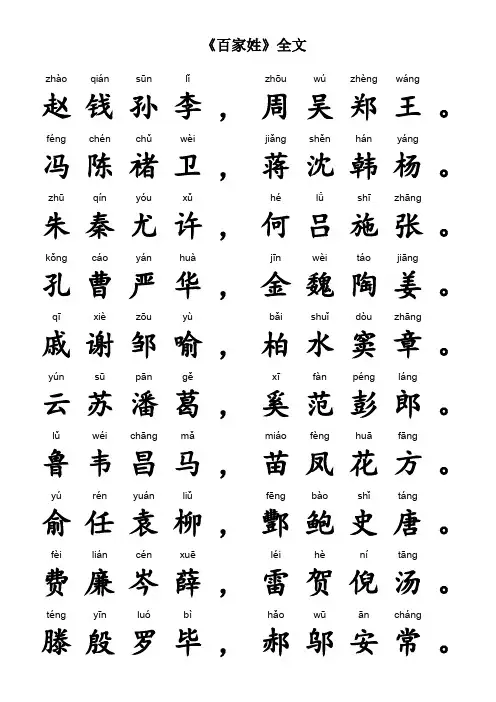 《百家姓》全文
zhào qián sūn lǐ zhōu wú zhèng wáng
赵钱孙李，周吴郑王。
féng chén chǔ wèi jiǎng shěn hán yáng
冯陈褚卫，蒋沈韩杨。
zhū qín yóu xǔ hé lǚ shī zhāng
朱秦尤许，何吕施张。
kǒng cáo yán huà jīn wèi táo jiāng
孔曹严华，金魏陶姜。
qī xiè zōu yù bǎi shuǐ dòu zhāng
戚谢邹喻，柏水窦章。
yún sū pān gě xī fàn péng láng
云苏潘葛，奚范彭郎。
lǔ wéi chāng mǎ miáo fèng huā fāng
鲁韦昌马，苗凤花方。
yú rén yuán liǔ fēng bào shǐ táng
俞任袁柳，酆鲍史唐。
fèi lián cén xuē léi hè ní tāng
费廉岑薛，雷贺倪汤。
téng yīn luó bì hǎo wū ān cháng
滕殷罗毕，郝邬安常。